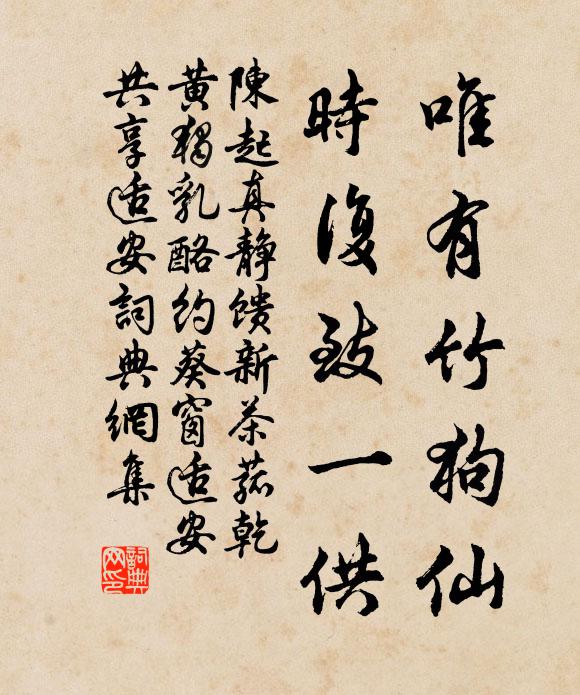 唯有竹狗仙
時復致一供
陳起真靜馈新茶菰乾
黃獨乳酪約葵窗适安
共享适安詞典網集
詞典网印